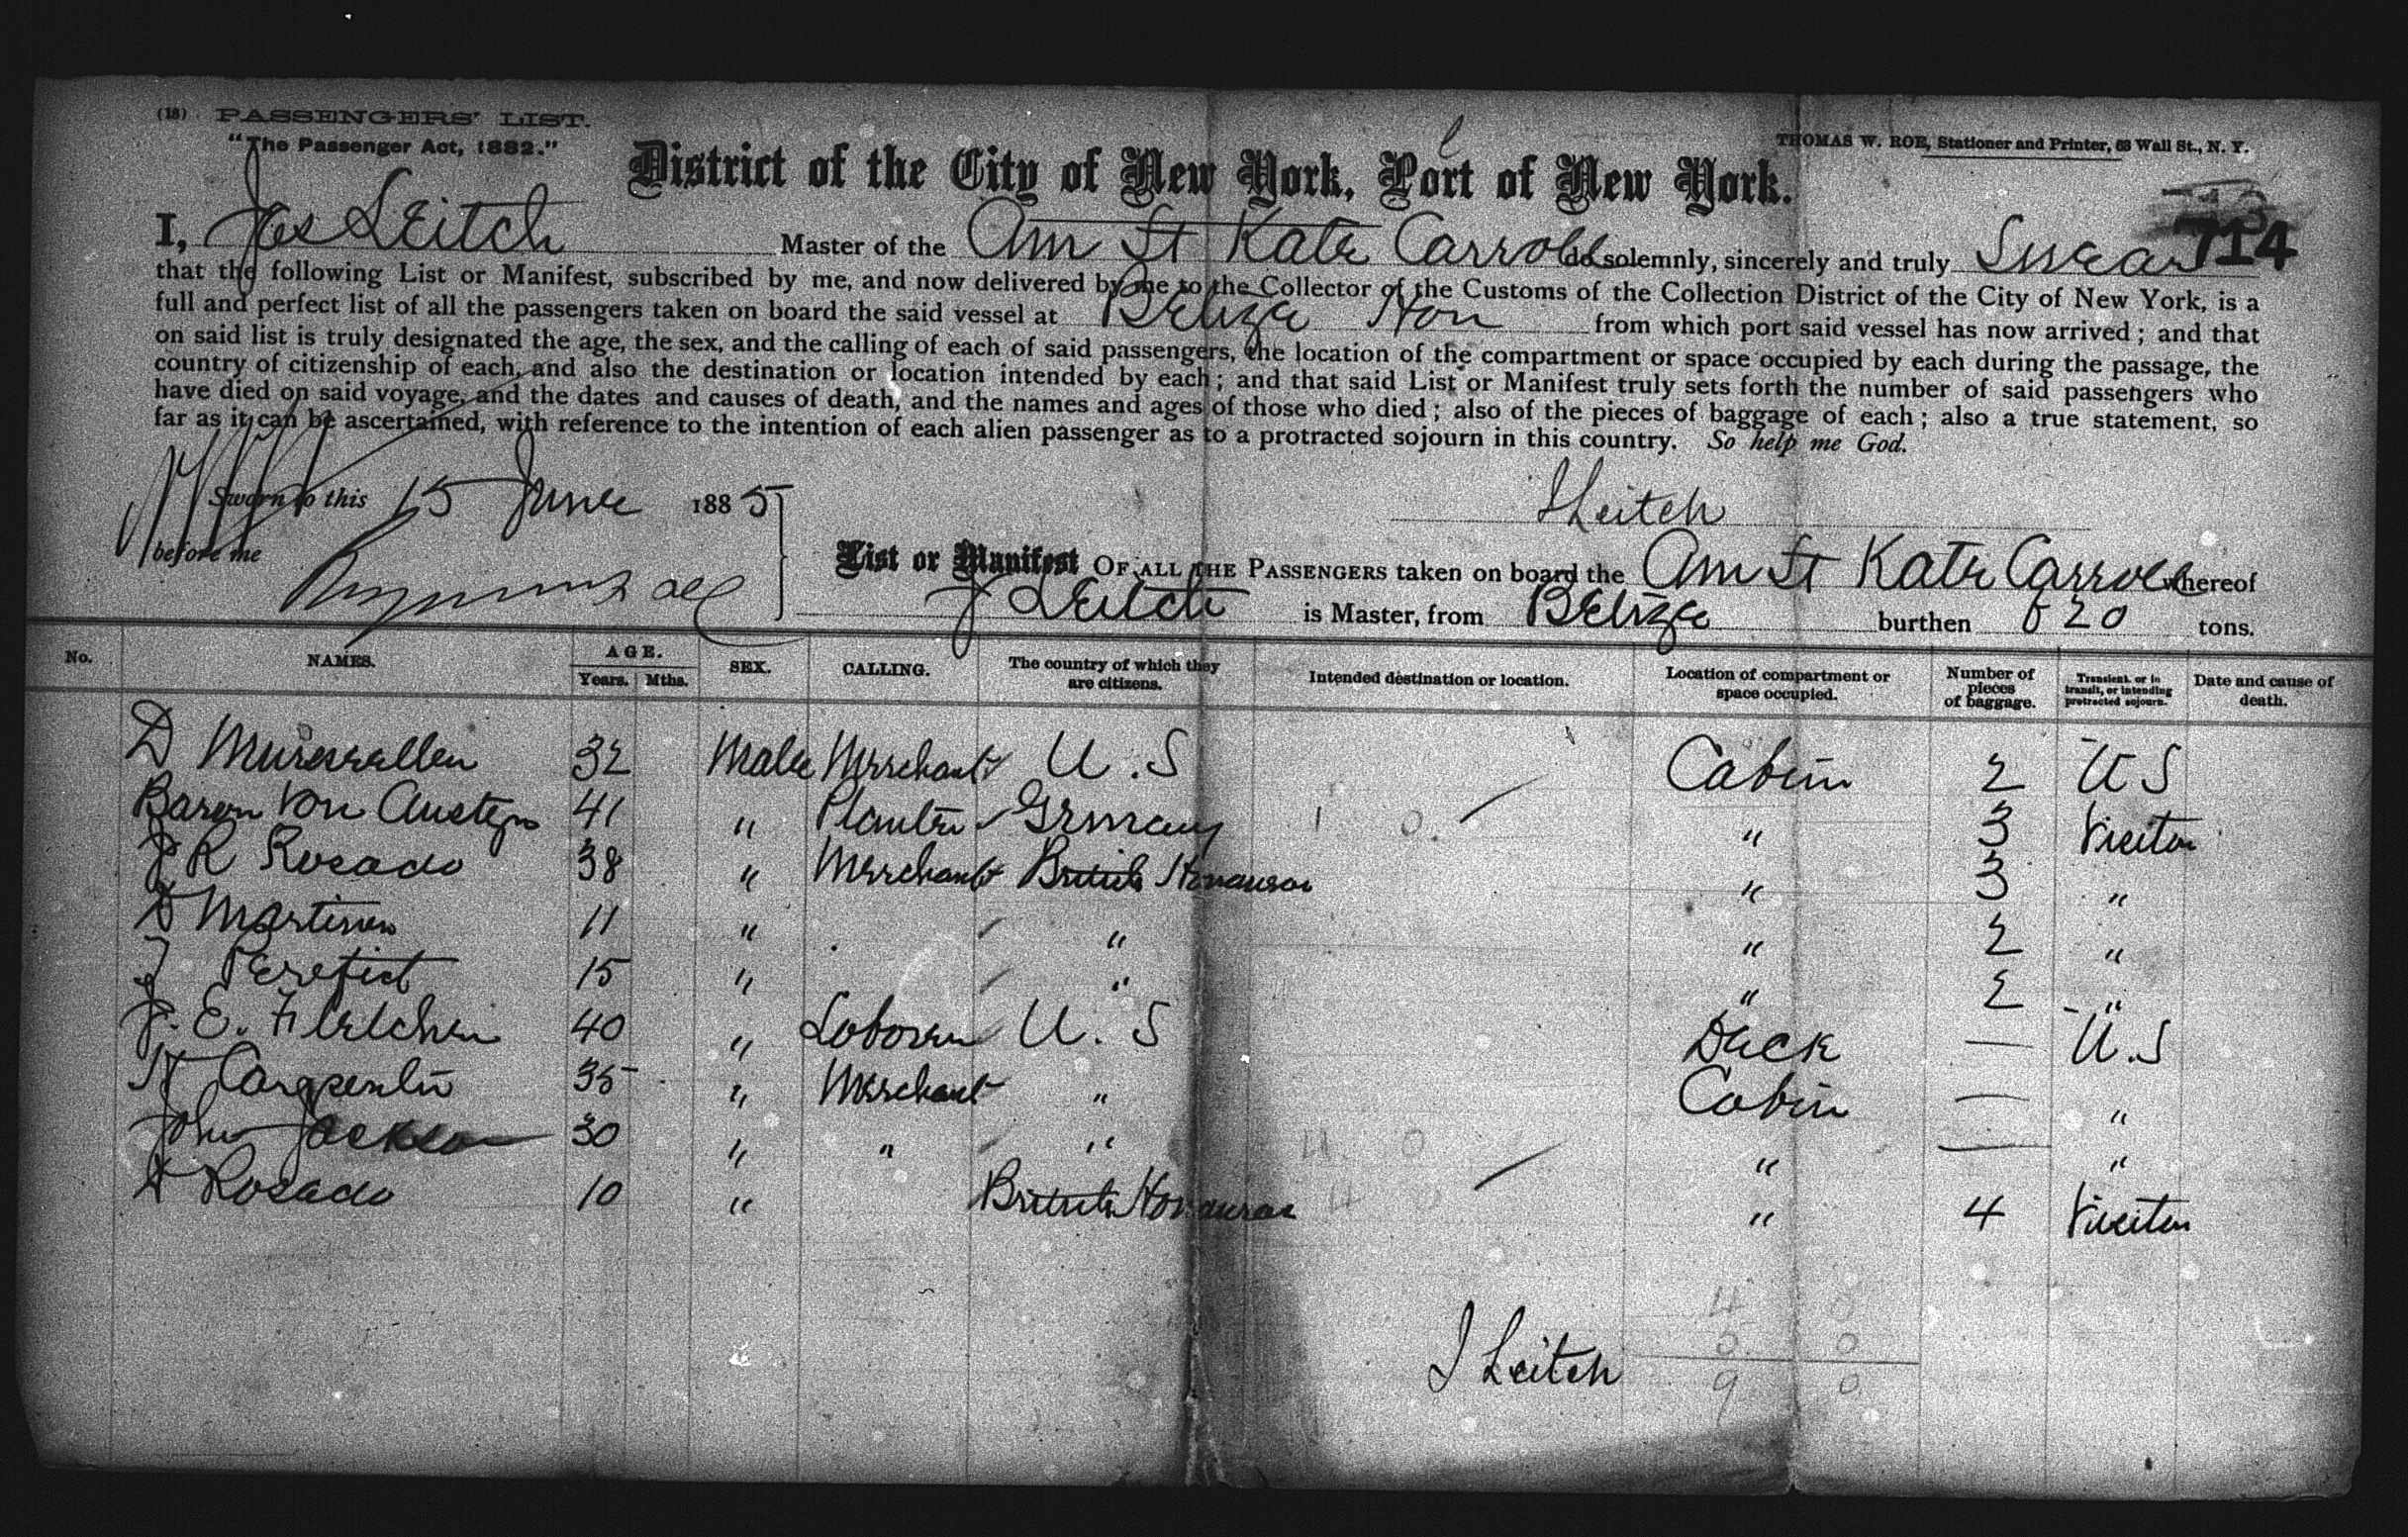 (18) PASSENGERS' LIST.
"The Passenger Act, 1882."
THOMAS W. ROE, Stationer and Printer, 68 Wall St., N. Y.
District of the City of New York, Port of New York.
714
I, Jas Leitch Master of the Am St Kate Carroll do solemnly, sincerely and truly Swear
that the following List or Manifest, subscribed by me, and now delivered by me to the Collector of the Customs of the Collection District of the City of New York, is a
full and perfect list of all the passengers taken on board the said vessel at Belize Hon from which port said vessel has now arrived; and that
on said list is truly designated the age, the sex, and the calling of each of said passengers, the location of the compartment or space occupied by each during the passage, the
country of citizenship of each, and also the destination or location intended by each; and that said List or Manifest truly sets forth the number of said passengers who
have died on said voyage, and the dates and causes of death, and the names and ages of those who died; also of the pieces of baggage of each; also a true statement, so
far as it can be ascertained, with reference to the intention of each alien passenger as to a protracted sojourn in this country. So help me God.
Sworn to this 15 June 1885
J Leitch
before me
List or Manifest OF ALL THE PASSENGERS taken on board the Am St Kate Carroll whereof
J Leitch is Master, from Belize burthen 620 tons.
No. NAMES. AGE. Years. Mths. SEX. CALLING. The country of which they are citizens. Intended destination or location. Location of compartment or space occupied. Number of pieces of baggage. Transient, or in transit, or intending protracted sojourn. Date and cause of death.
D 32 Male Merchant U.S Cabin 2 U S
Baron Von Austen 41 " Planter Germany " 3 Visitor
J R Rosado 38 " Merchant British Honduras " 3 "
D Martinez 11 " " " 2 "
J 15 " " " 2 "
J. E. Fletcher 40 " Laborer U. S Deck — U.S
H Carpenter 35 " Merchant " Cabin — "
John Jackson 30 " " " " — "
D Rosado 10 " British Honduras " 4 Visitor
J Leitch